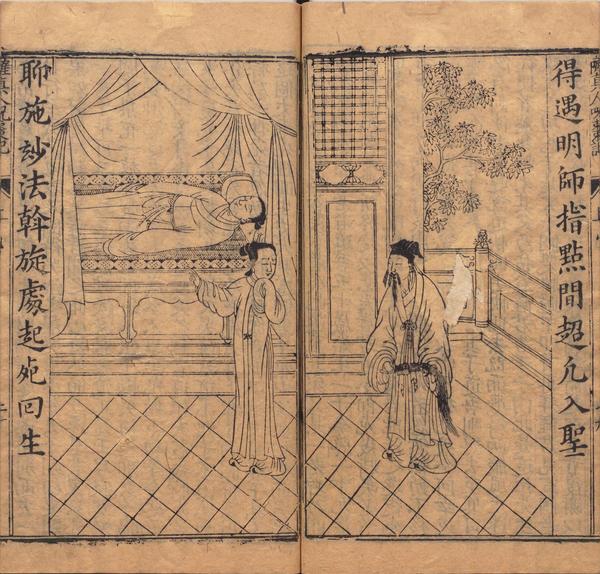 得遇明師指點間超凡入聖
聊施玅法斡旋處起死回生